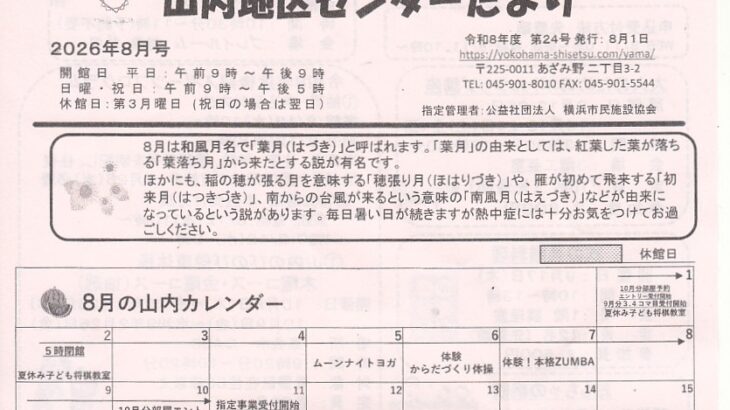 山内地区センターだより
2026年8月号
令和8年度 第24号 発行：8月1日
https://yokohama-shisetsu.com/yama/
開館日 平日：午前９時～午後９時
〒225-0011 あざみ野 二丁目3-2
日曜・祝日：午前９時～午後５時
TEL: 045-901-8010 FAX: 045-901-5544
休館日：第３月曜日（祝日の場合は翌日）
指定管理者：公益社団法人 横浜市民施設協会
８月は和風月名で「葉月（はづき）」と呼ばれます。「葉月」の由来としては、紅葉した葉が落ち
る「葉落ち月」から来たとする説が有名です。
ほかにも、稲の穂が張る月を意味する「穂張り月（ほはりづき）」や、雁が初めて飛来する「初
来月（はつきづき）」、南からの台風が来るという意味の「南風月（はえづき）」などが由来に
なっているという説があります。毎日暑い日が続きますが熱中症には十分お気をつけてお過
ごしください。
休館日
8月の山内カレンダー
1
10月分部屋予約
エントリー受付開始
9月分３.４コマ目受付開始
夏休み子ども将棋教室
2
3
4
5
6
7
8
５時閉館
夏休み子ども将棋教室
ムーンナイトヨガ
体験
からだづくり体操
体験！本格ZUMBA
9
10
11
12
13
14
15
10月分部屋エント
指定事業受付開始